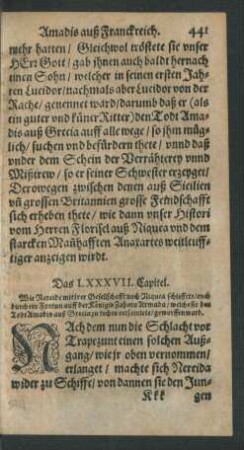 Amadis auß Franckreich. 441
mehr hatten / Gleichwol tröstete sie vnser
HErr Gott / gab jhnen auch baldt hernach
einen Sohn / welcher in seinen ersten Jah-
ren Lucidor / nachmals aber Lucidor von der
Rache / genennet ward / darumb daß er (als
ein guter vnd küner Ritter) den Todt Ama-
dis auß Grecia auff alle wege / so jhm müg-
lich / suchen vnd befürdern thete / vnnd daß
vnder dem Schein der Verrähterey vnnd
Mißtrew / so er seiner Schwester erzeyget /
Derowegen zwischen denen auß Sicilien
vñ grossen Britannien grosse Feindschafft
sich erheben thete / wie dann vnser Histori
vom Herren Florisel auß Niquea vnd dem
starcken Mañhafften Anaxartes weitleuff-
tiger anzeigen wirdt.
Das LXXXVII. Capitel.
Wie Nereida mit irer Gesellschafft nach Niquea schiffete / vnd
durch ein Fortun auff der Königin Zahara Armada / welche sie den
Todt Amadis auß Grecia zu rechen
NAch dem nun die Schlacht vor
Trapezunt einen solchen Auß-
gang / wie jr oben vernommen /
erlanget / machte sich Nereida
wider zu Schiffe / von dannen sie den Jun-
Kkk gen